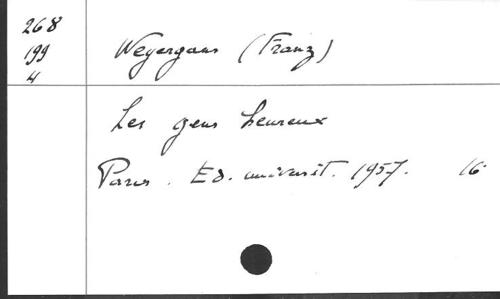 268
199
4
Weyergans (Franz)
Les gens heureux
Paris. Ed. universit. 1957. 16°